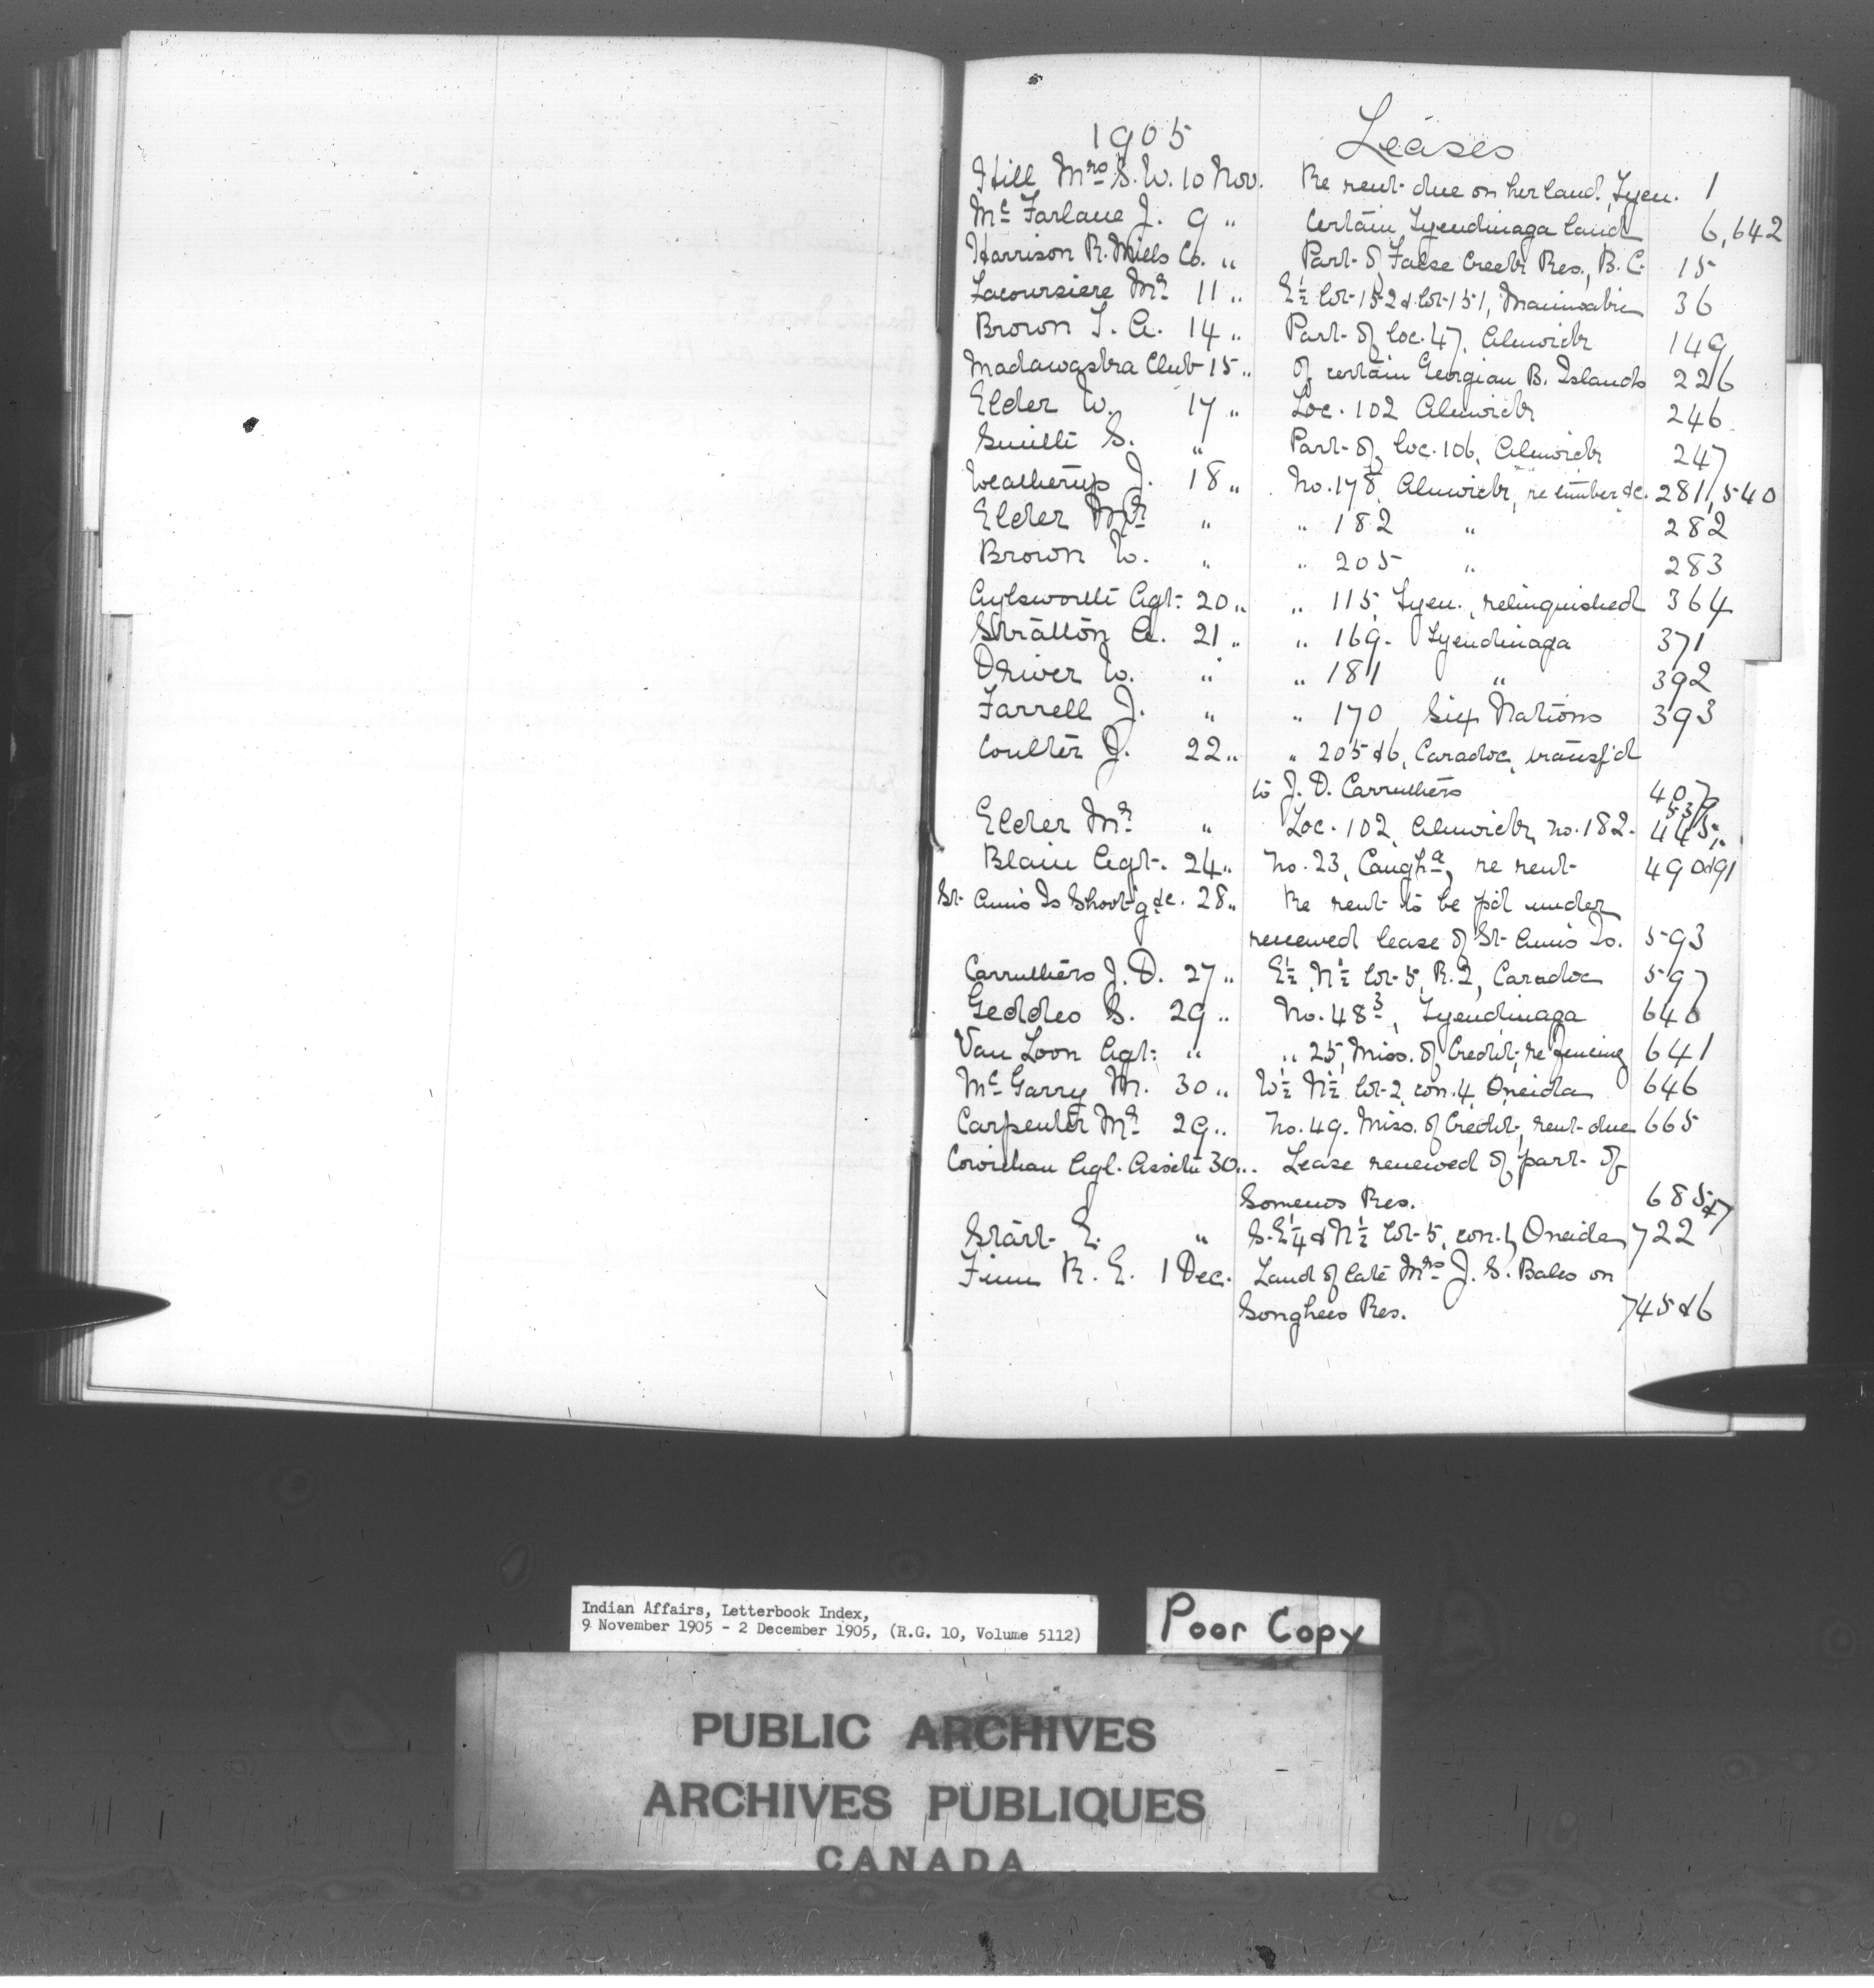 1905 Leases
Hill Mrs S. W. 10 Nov. Re rent due on her land, Tyen. 1
McFarlane J. 9 " Certain Tyendinaga land 6, 642
Harrison R. Mills Co. " Part of False Creek Res., B.C. 15
Lacoursiere Mr 11 " E½ lot 152 & lot 151, Maniwaki 36
Brown T. A. 14 " Part of loc. 47, Alnwick 149
Madawaska Club 15 " Of certain Georgian B. Islands 226
Elder W. 17 " Loc. 102 Alnwick 246
Smith S. " Part of loc. 106, Alnwick 247
Weatherup J. 18 " No. 178, Alnwick, re timber &c. 281, 540
Elder Mr " " 182 " 282
Brown W. " " 205 " 283
Aylsworth Agt. 20 " " 115, Tyen., relinquished 364
Stratton A. 21 " " 169. Tyendinaga 371
Driver W. " " 181 " 392
Farrell J. " " 170 Six Nations 393
Coulter J. 22 " " 205 & 6, Caradoc, transf'd
to J. D. Carruthers 407
Elder Mr " Loc. 102, Alnwick, No. 182. 445, 539
Blain Agt. 24 " No. 23, Caugha, re rent 490 & 91
St. Anns Is Shoot'g &c. 28 " Re rent to be p'd under
renewed lease of St. Anns Is. 593
Carruthers J. D. 27 " E½ N½ lot 5, R. 2, Caradoc 597
Geddes S. 29 " No. 48³, Tyendinaga 640
Van Loon Agt. " " 25, Miss. of Credit, re fencing 641
McGarry M. 30 " W½ N½ lot 2, con. 4, Oneida 646
Carpenter Mr 29 " No. 49. Miss. of Credit, rent due 665
Cowichan Agl. Assctn 30 " Lease renewed of part of
Somenos Res. 685 & 7
Start E. " S.E¼ & N½ lot 5, con. 1, Oneida 722
Finn R. E. 1 Dec. Land of late Mrs J. S. Bales on
Songhees Res. 745 & 6
Indian Affairs, Letterbook Index,
9 November 1905 - 2 December 1905, (R.G. 10, Volume 5112)
Poor Copy
PUBLIC ARCHIVES
ARCHIVES PUBLIQUES
CANADA